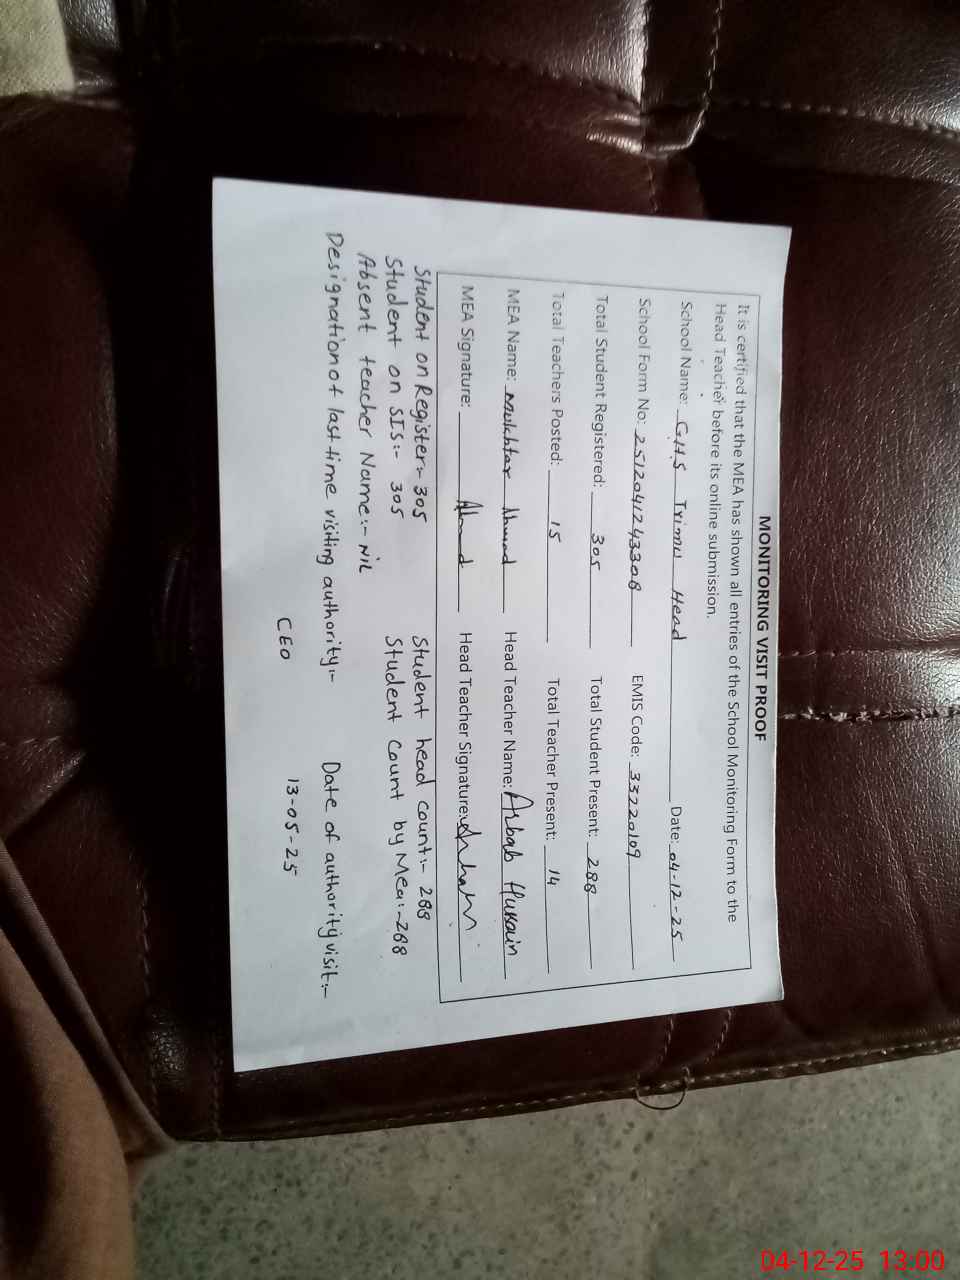 MONITORING VISIT PROOF
It is certified that the MEA has shown all entries of the School Monitoring Form to the
Head Teacher before its online submission.
School Name: GHS Trimu Head Date: 04-12-25
School Form No: 2512041243308 EMIS Code: 33220109
Total Student Registered: 305 Total Student Present: 288
Total Teachers Posted: 15 Total Teacher Present: 14
MEA Name: Mukhtar Ahmad Head Teacher Name: Arbab Hussain
MEA Signature: Ahmad Head Teacher Signature:
Student on Register:- 305 Student head count:- 288
Student on SIS:- 305 Student Count by Mea:-288
Absent teacher Name:- NIL
Designation of last time visiting authority:- Date of authority visit:-
CEO 13-05-25
04-12-25 13:00